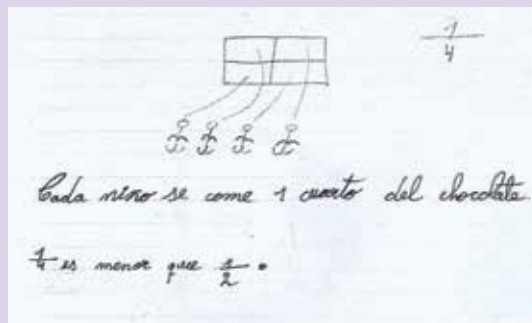 1/4
Cada niño se come 1 cuarto del chocolate.
1/4 es menor que 1/2.